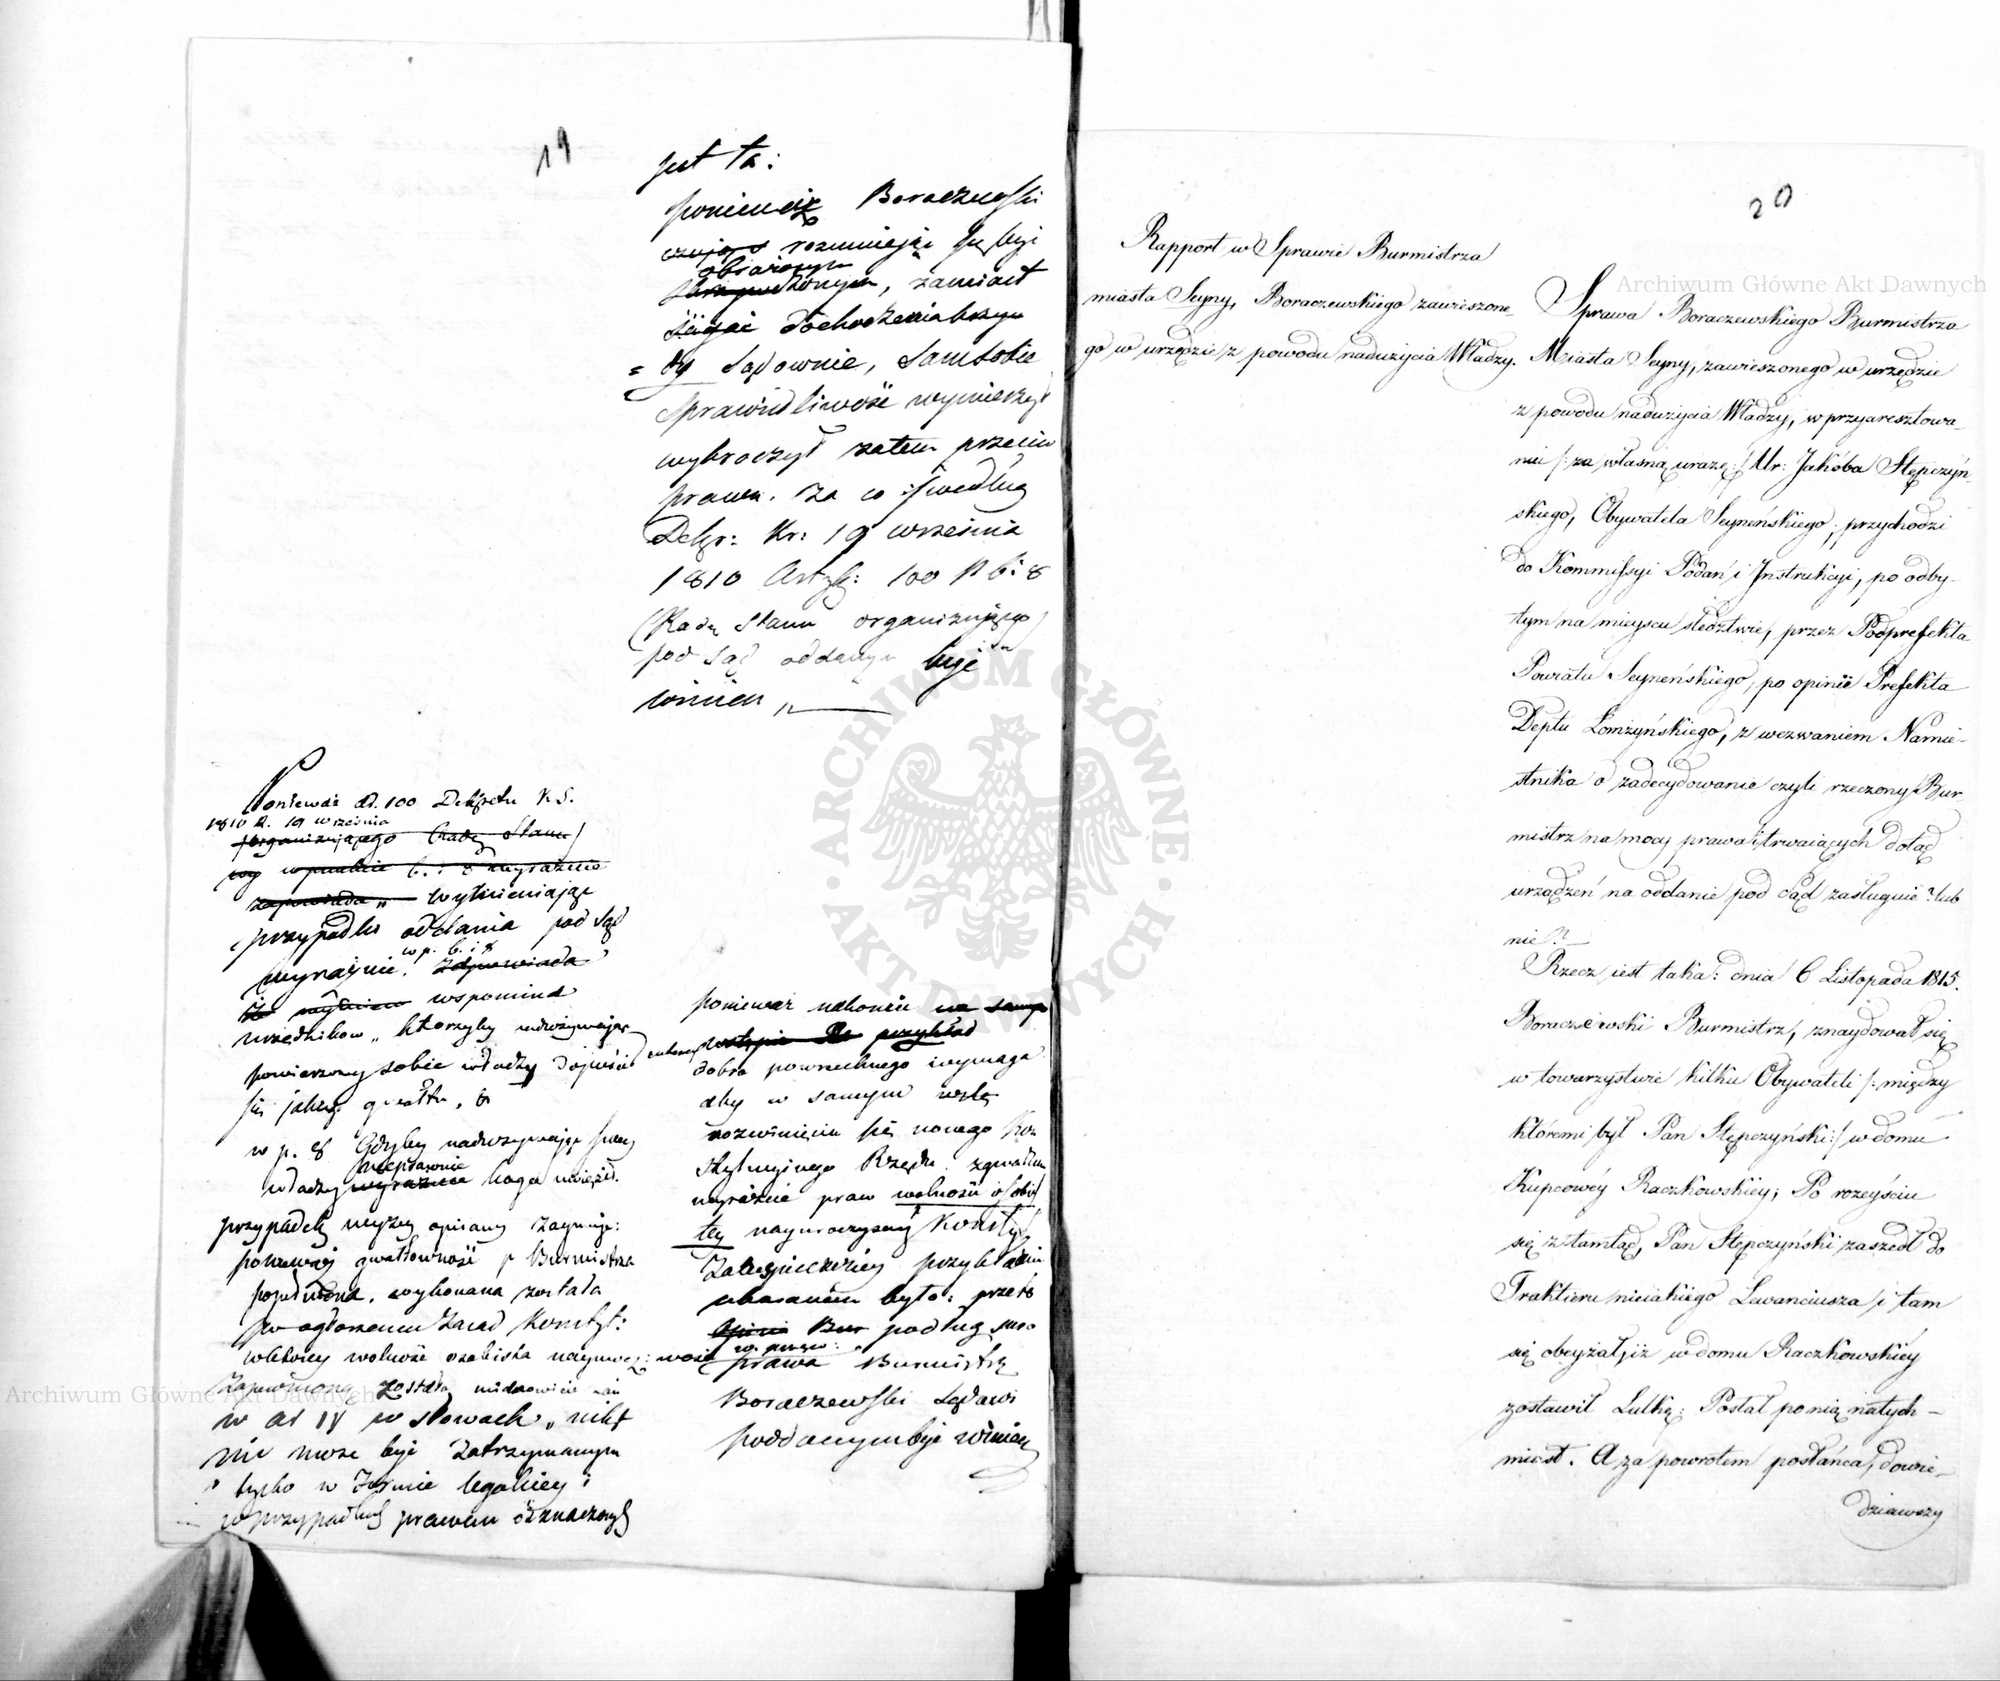 19
jest ta:
ponieważ Boraczewski
czując rozumiejąc się być
obrażonym
żonym, zamiast
żądać dochodzenia krzyw
= dy sądownie, sam sobie
sprawiedliwość wymierzył
wykroczył zatem przeciw
prawu. Za co podług
Dekr: Kr: 19 września
1810 Artyk: 100 p b: 8
(Radę Stanu organizującego)
pod sąd oddanym być
winien „
Ponieważ at. 100 Dekretu K. S.
1810 R. 19 września
(organizującego Radę Stanu)
w punkcie 6. i 8 wyraźnie
zapowiada „ wymieniając
przypadki oddania pod sąd
w p. 6. i 8
wyraźnie,
wspomina
urzędników „ którzyby nadużywając
powierzoney sobie władzy dopuścili
się jakiego gwałtu,
w p. 8 Gdyby nadużywając swey
nieprawnie
władzy wyraźnie kogo uwięził.
przypadek wyżey opisany zaymuje:
ponieważ gwałtowność p Burmistrza
popełniona, wykonana została
po ogłoszeniu Zasad Konstyt:
w ktorey wolność osobista
zapewnioną została
w at 18 w słowach „ nikt
nie może być zatrzymanym
tylko w formie legalney i
w przypadkach prawem oznaczonych
ponieważ nakoniec na samym
wstępie dla przykład
dobro powszechnego wymaga
aby w samym
rozwinięciu się nowego Kon
stytucyinego Rządu zgwałcen
wyraźnie praw wolności osobis
tey nayuroczyściey Konsty
Zabezpieczoney przykładnie
ukaranem było: przeto
podług
prawa Burmistrz
Boraczewski Sądowi
poddanym być winien
20
Rapport w Sprawie Burmistrza
miasta Seyny, Boraczewskiego zawieszone-
go w urzędzie z powodu nadużycia Władzy.
Sprawa Boraczewskiego Burmistrza
Miasta Seyny, zawieszonego w urzędzie
z powodu nadużycia Władzy, w przyaresztowa-
niu /: za własną urazę :/ Ur: Jakóba Stępczyń-
skiego, Obywatela Seyneńskiego, przychodzi
do Kommissyi Podań i Instrukcyi, po odby-
tym na mieyscu śledztwie, przez Podprefekta
Powiatu Seyneńskiego, po opinii Prefekta
Deptu Łomżyńskiego, z wezwaniem Namie-
stnika o zadecydowanie czyli rzeczony Bur-
mistrz na mocy prawa i trwaiących dotąd
urządzeń na oddanie pod Sąd zasługuie? lub
nie?
Rzecz iest taka: dnia 6 Listopada 1815.
Boraczewski Burmistrz, znaydował się
w towarzystwie kilku Obywateli /: między
któremi był Pan Stępczyński :/ w domu
Kupcowéy Raczkowskiéy; Po rozeyściu
się z tamtąd, Pan Stępczyński zaszedł do
Traktieru nieiakiego Lewanciusza i tam
się obeyżał, iż w domu Raczkowskiéy
zostawił Lulkę: Posłał po nią natych-
miast. A za powrotem posłańca, dowie-
dziawszy
Archiwum Główne Akt Dawnych
Archiwum Główne Akt Dawnych
ARCHIWUM GŁÓWNE · AKT DAWNYCH ·